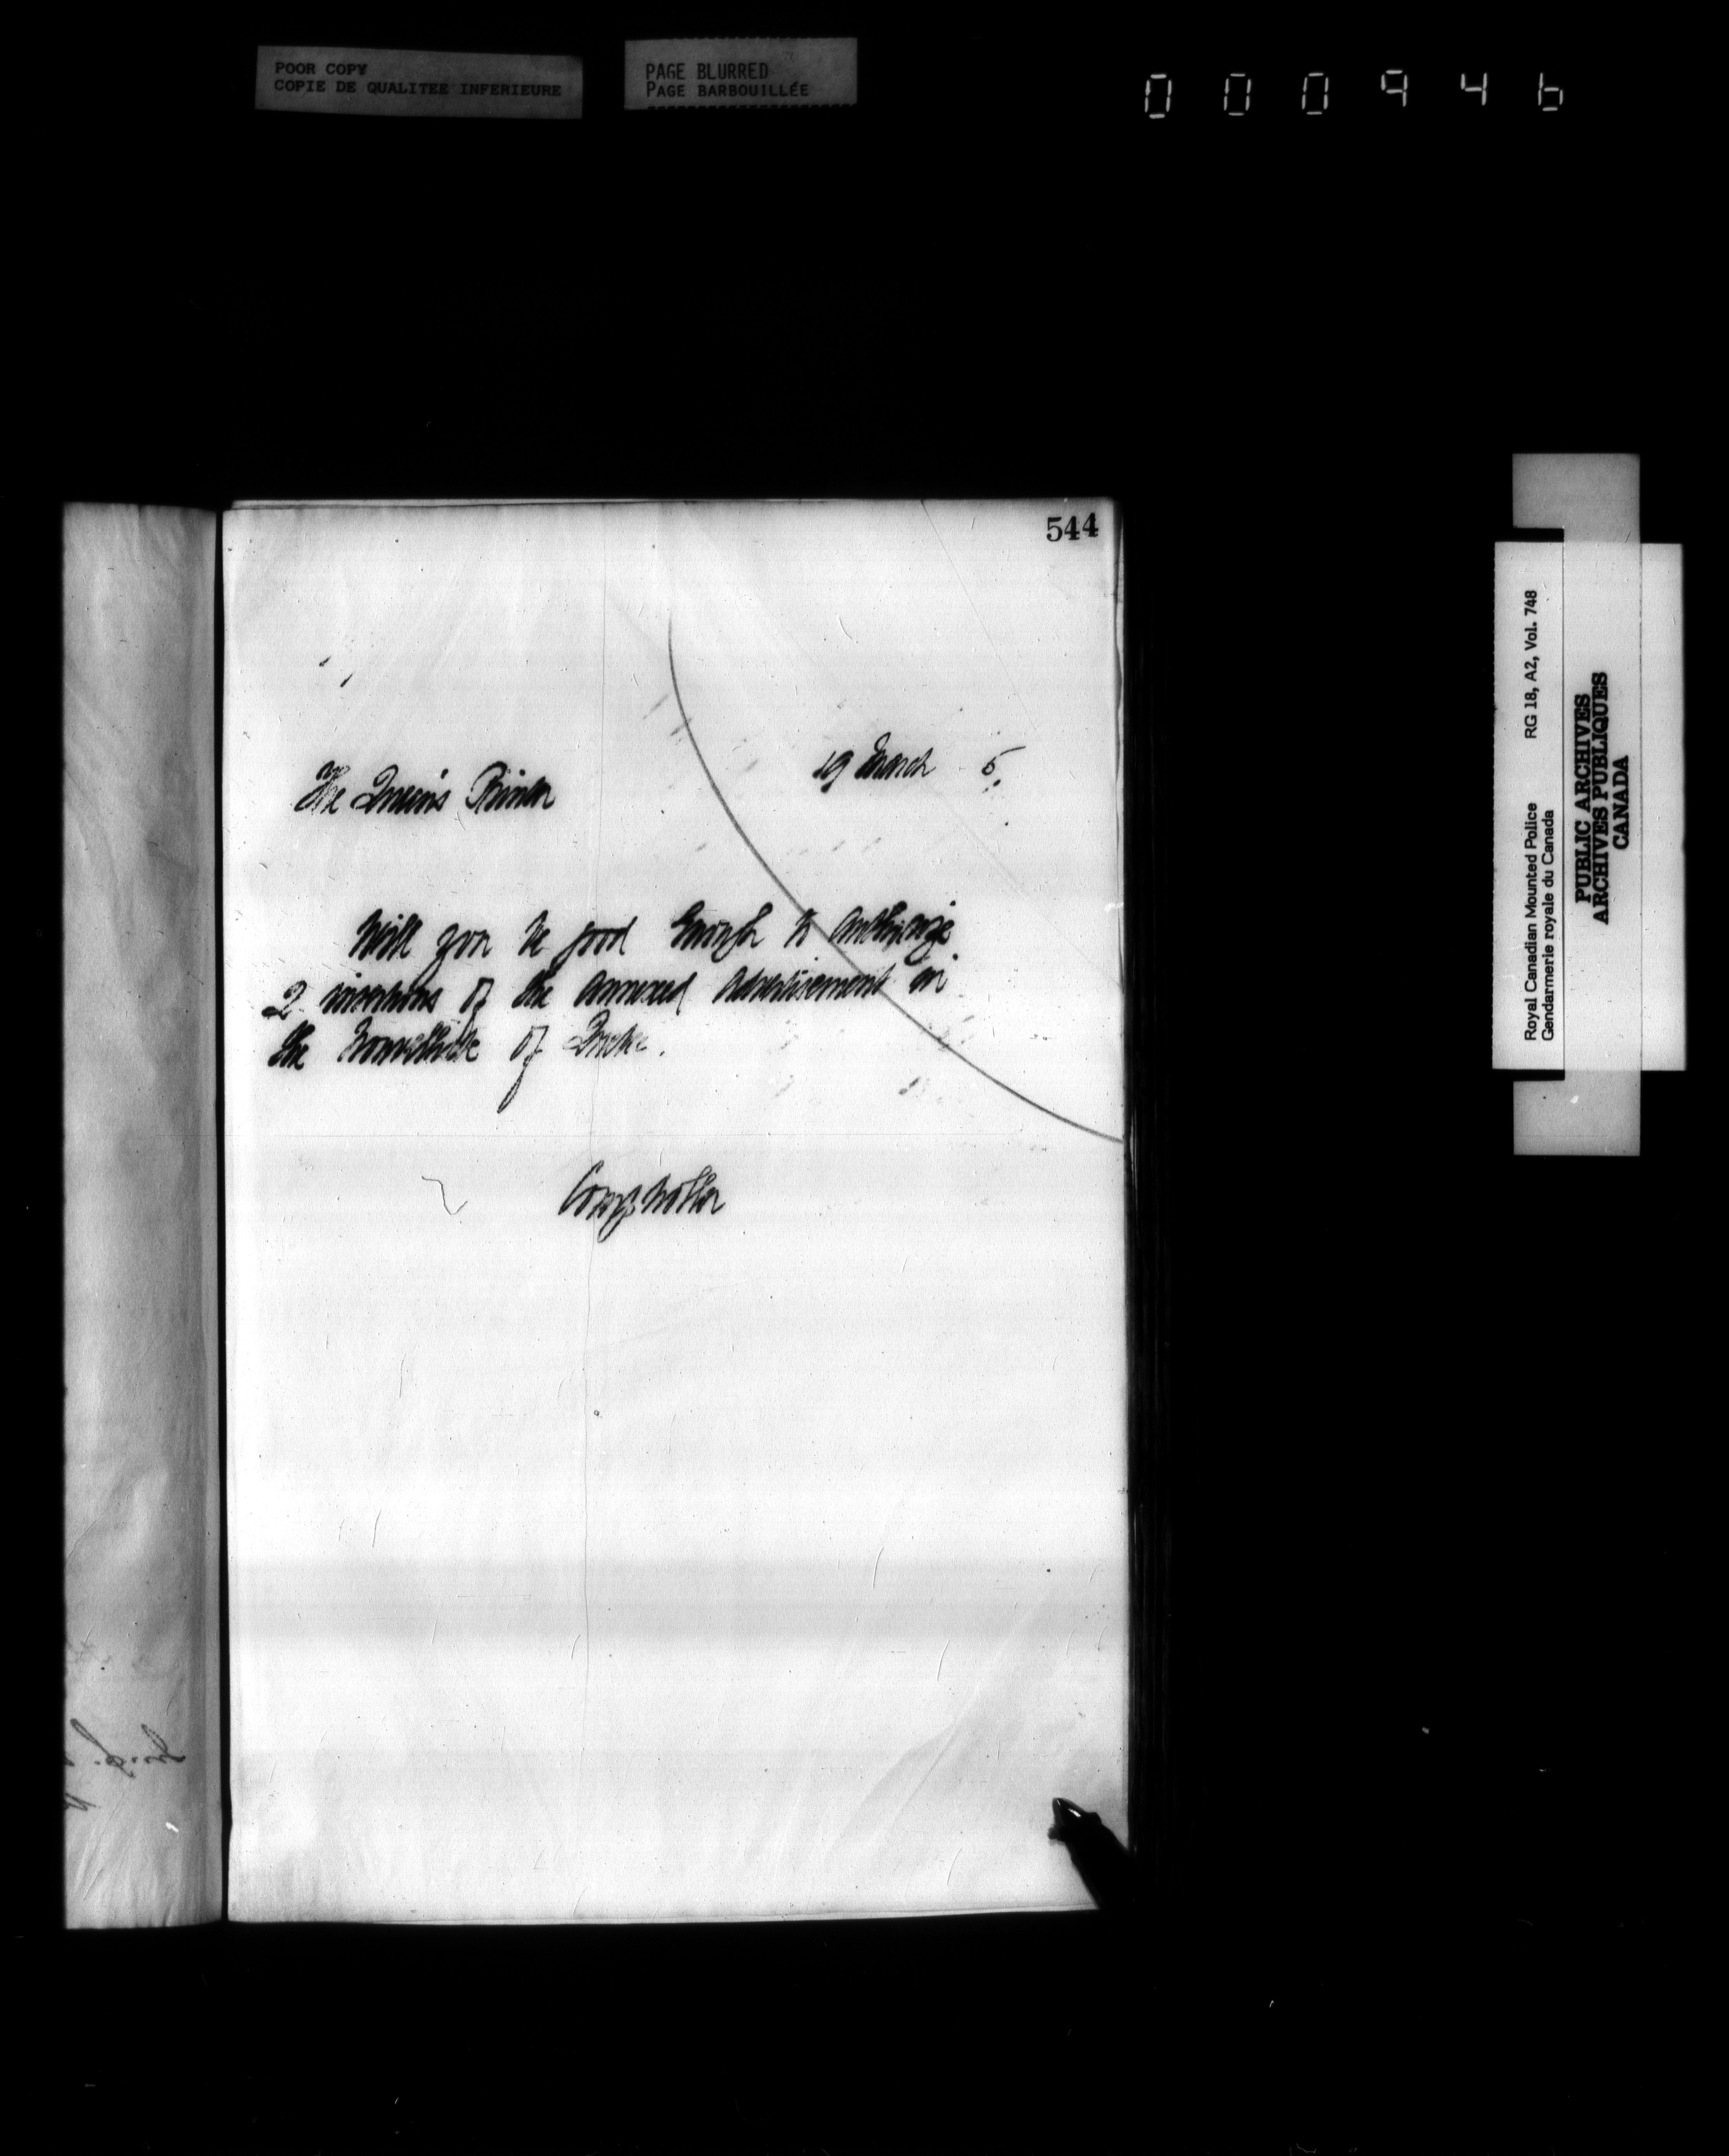 POOR COPY
COPIE DE QUALITEE INFERIEURE
PAGE BLURRED
PAGE BARBOUILLÉE
000946
544
19 March 5.
The Queen's Printer
Will you be good enough to authorize
2 insertions of the annexed advertisement in
the of Quebec.
Comptroller
Royal Canadian Mounted Police RG 18, A2, Vol. 748
Gendarmerie royale du Canada
PUBLIC ARCHIVES
ARCHIVES PUBLIQUES
CANADA